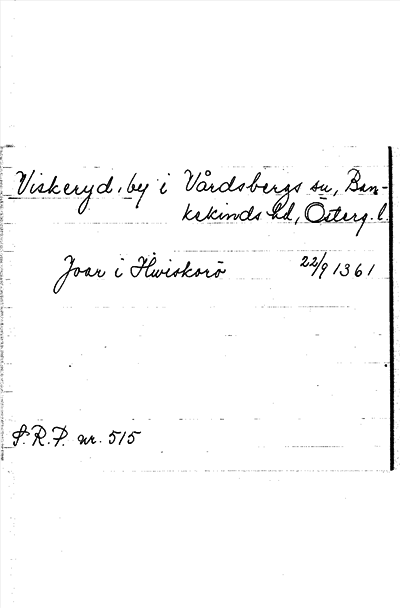 Viskeryd, by i Vårdsbergs sn, Ban-
kekinds hd, Österg. l.
Joar i Hwiskorö 22/9 1361
S.R.P. nr. 515